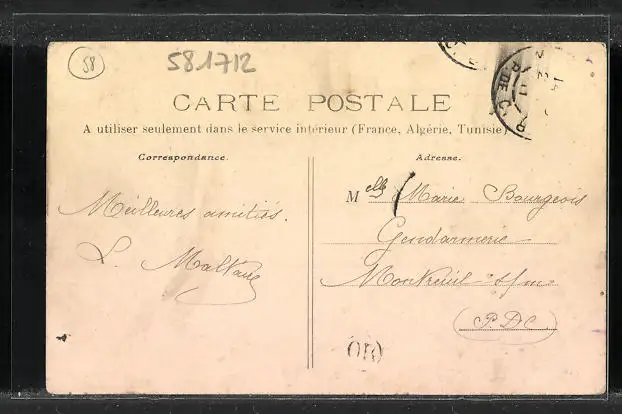 58
581712
CARTE POSTALE
A utiliser seulement dans le service intérieur (France, Algérie, Tunisie)
Correspondance.
Meilleures amitiés.
Adresse.
Melle Marie Bourgeois
Gendarmerie
Montreuil s/m
(P.D.C)